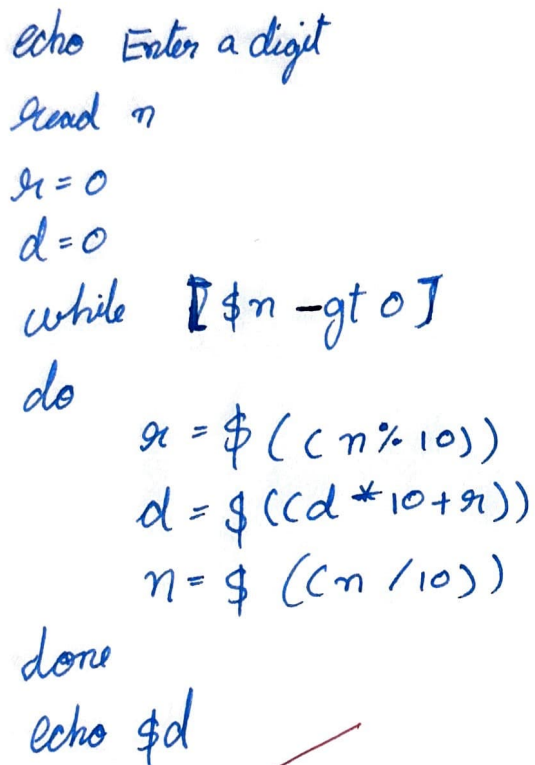 echo Enter a digit
read n
r=0
d=0
while [$n -gt 0]
do
r = $((n%10))
d = $((d*10+r))
n = $((n/10))
done
echo $d